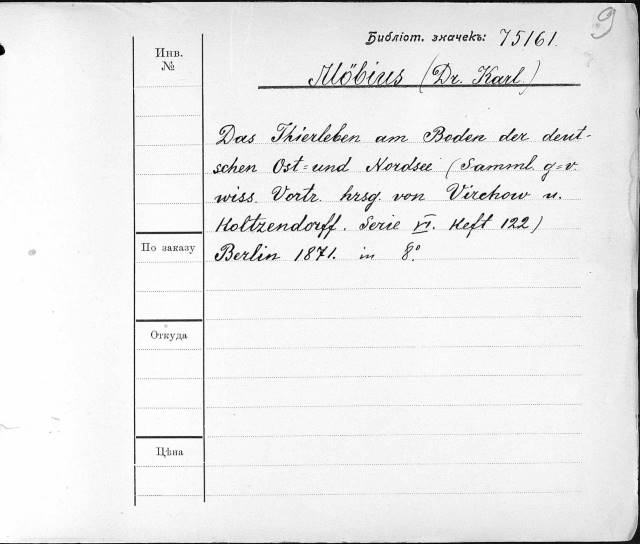 9
Библіот. значекъ: 75161.
Инв.
№
Möbius (Dr. Karl)
Das Thierleben am Boden der deut-
schen Ost=und Nordsee (Samml. g=v.
wiss. Vortr. hrsg. von Virchow u.
Holtzendorff. Serie VI. Heft 122)
По заказу
Berlin 1871. in 8º.
Откуда
Цѣна